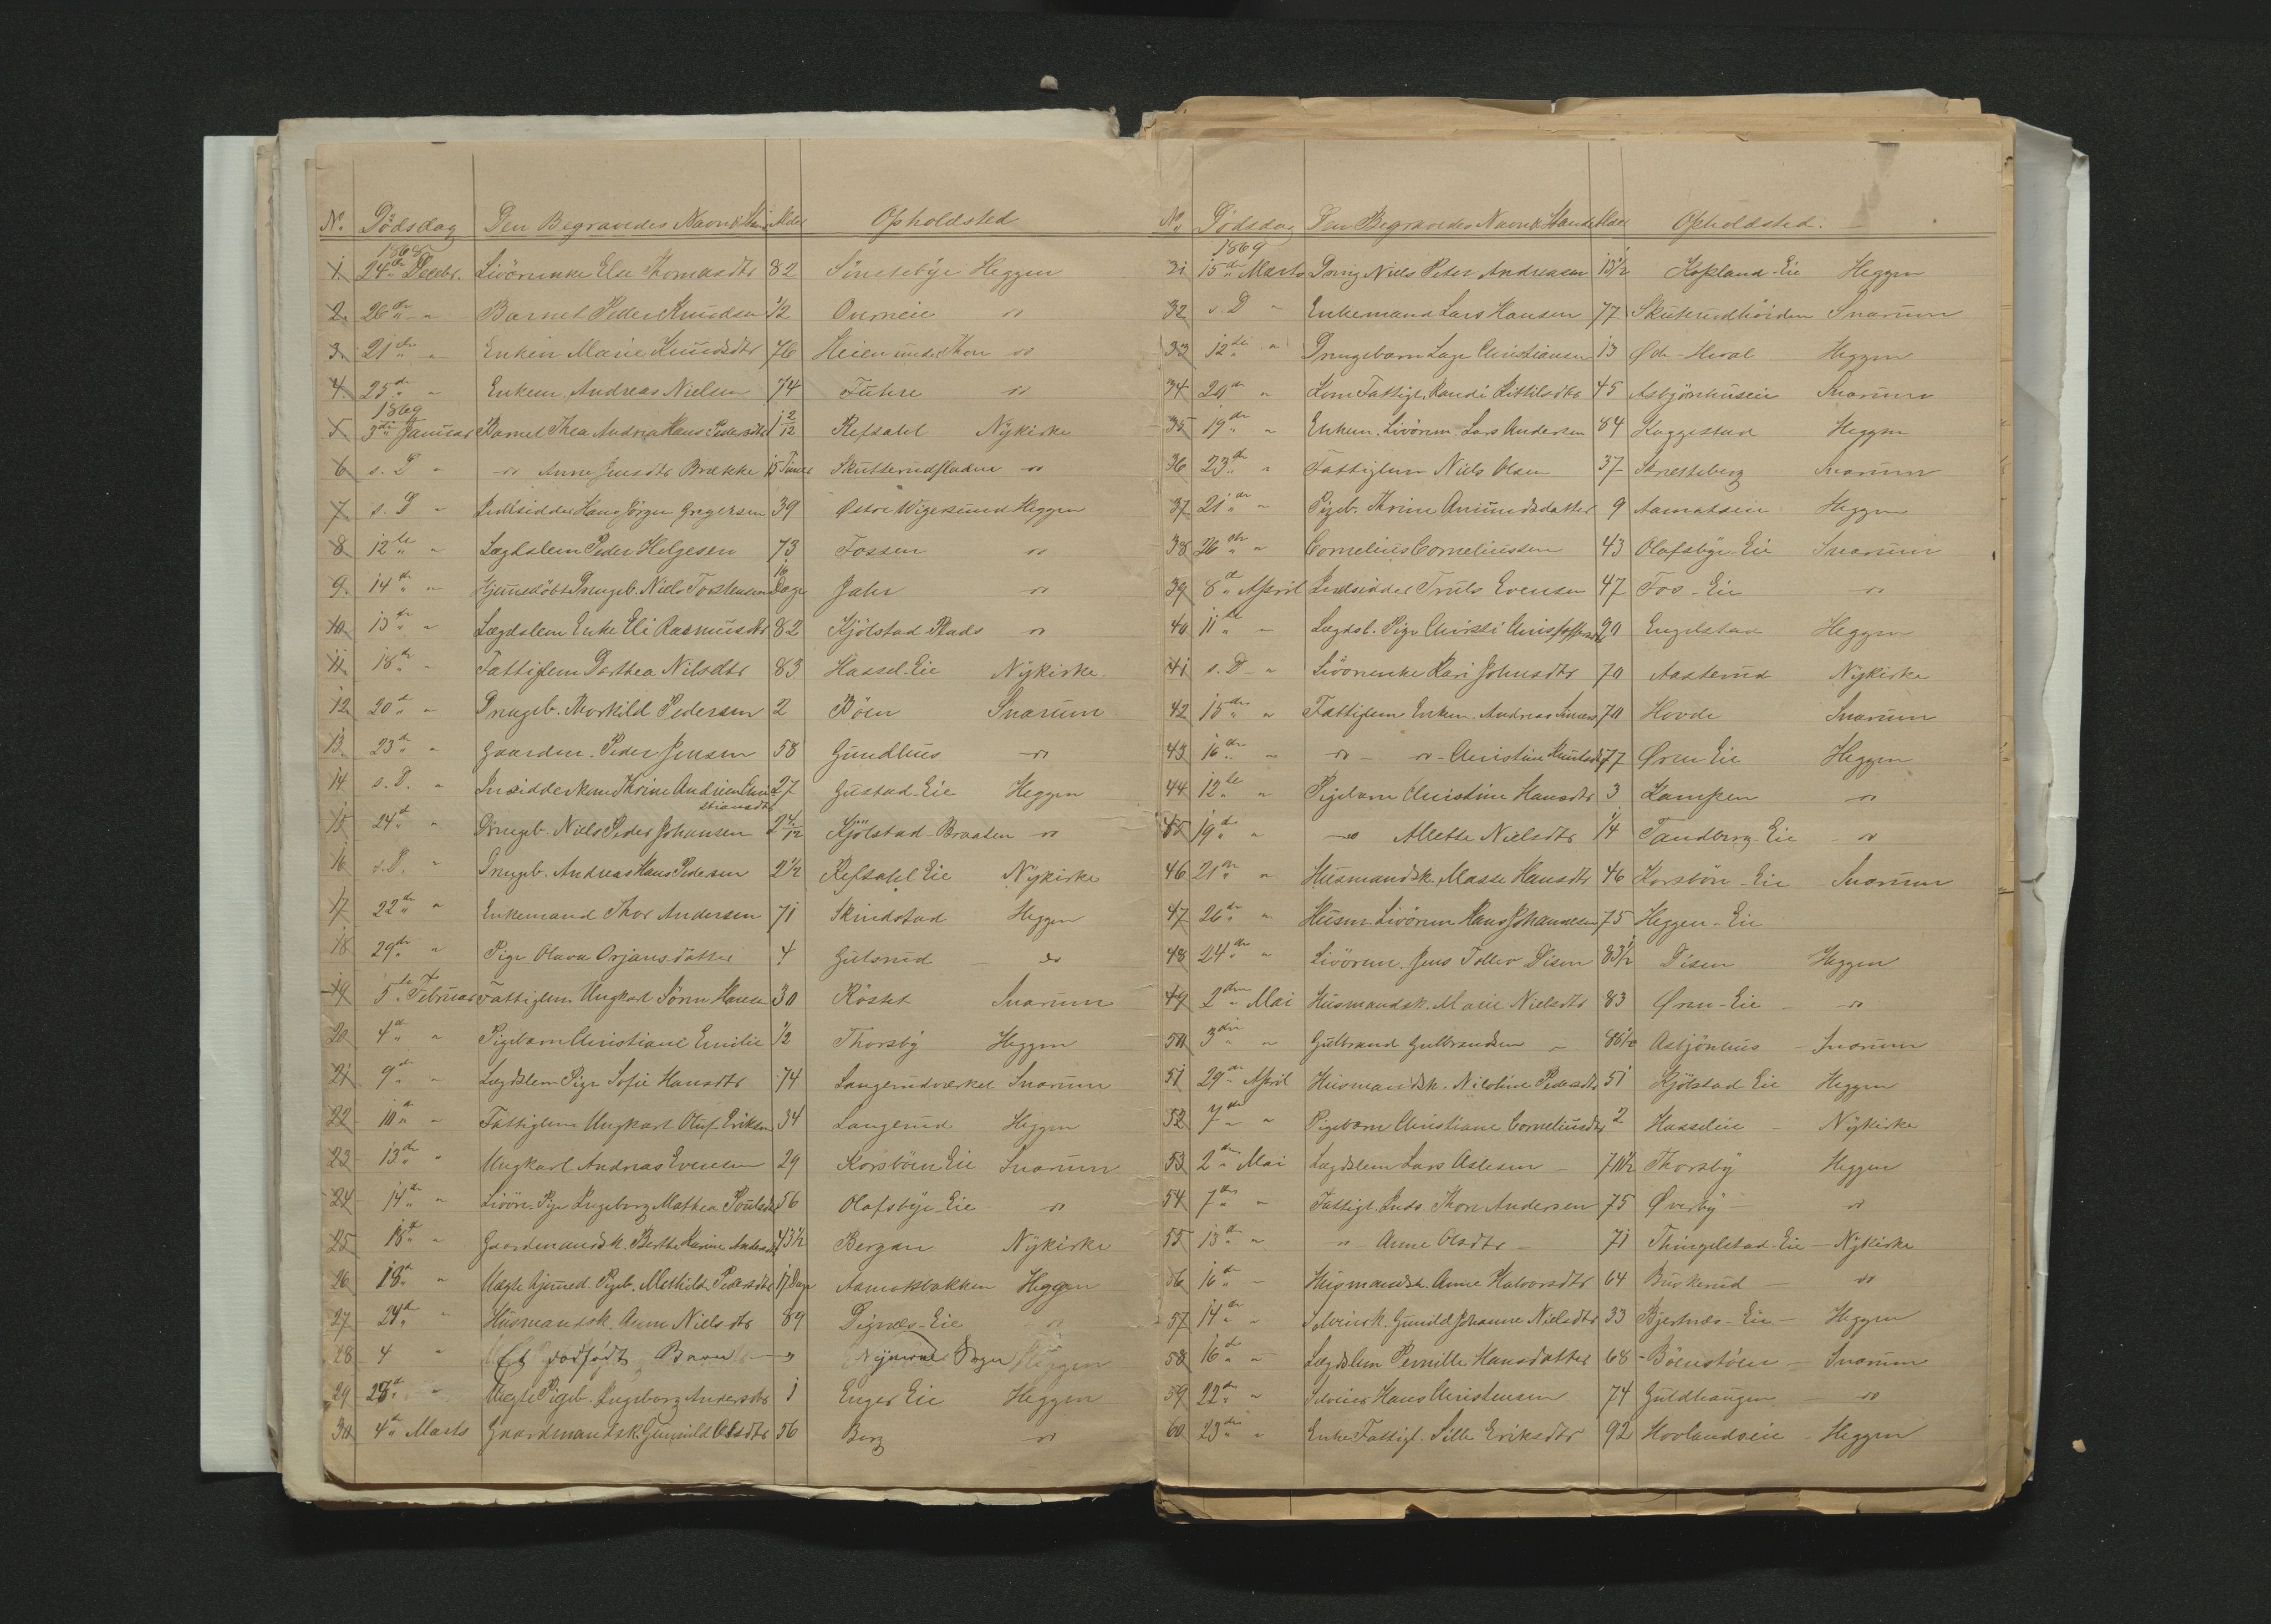 No. Dödsdag Den Begravedes Navn & Stand Alder Opholdsted
1868
1. 24de Decebr. Livörenke Else Thomasdtr 82 Sönstebÿe Heggen
2. 26de " Barnet Peder Knudsen 1/2 Overneie do
3. 21de " Enken Marie Knudsdtr 76 Heien under Thon do
4. 25de " Enkem. Andreas Nielsen 74 Fuhre do
1869
5. 3die Januar Barnet Thea Andrea Hans Pedersdtr 1 2/12 Refsahl Nÿkirke
6 s. D " do Anne Jensdtr Brække 15 Timer Skutterudfladen do
7 s. D " Inderst Hans Jörgen Gregersen 39 Östre Wigersund Heggen
8 12te " Lægdslem Peder Helgesen 73 Fossen do
9. 14de " Hjemdöbt Drengeb. Niels Torstensen 16 Dage Jahr do
10 13de " Lægdslem Enke Eli Rasmusdtr 82 Kjölstad Plads do
11. 18de " Fattiglem Dorthea Nilsdtr 83 Hassel-Eie Nÿkirke
12. 20de " Drengeb. Thorkild Pedersen 2 Böen Snarum
13. 23de " Gaardm. Peder Jensen 58 Gundhus do
14 s. D. " Insidderkone Thrine Andrine Christiansdtr 27 Gustad-Eie Heggen
15 24de " Drengeb. Niels Peder Johansen 2 4/12 Kjölstad-Braaten do
16 s. D. " Drengeb. Andreas Hans Pedersen 2 1/2 Refsahl Eie Nÿkirke
17 22de " Enkemand Thor Andersen 71 Skindstad Heggen
18 29de " Pige Olava Orjansdatter 4 Gulsrud do
19 5te Februar Fattiglem Ungkarl Sören Hansen 30 Röstet Snarum
20 4de " Pigebarn Christiane Emilie 1/2 Thorsbÿ Heggen
21 9de " Lægdslem Pige Sofie Hansdtr 74 Langerudværket Snarum
22 10de " Fattiglem Ungkarl Oluf Eriksen 34 Langerud Heggen
23 13de " Ungkarl Andreas Evensen 29 Korsböen Eie Snarum
24 14de " Livör. Pige Ingeborg Mathea Poulsdtr 56 Olafsbÿe-Eie do
25 18de " Gaardmandsk. Berthe Karine Andersdtr 43 1/2 Bergan Nÿkirke
26 18de " Uægte hjemed. Pigeb. Mathilde Pedersdtr 17 Dage Aamotbakken Heggen
27 24de " Husmandsk. Anne Nielsdtr 89 Disnæs-Eie do
28 4 " Et dödfødt Barn " Heggen
29 28de " Uægte Pigeb. Ingeborg Andersdtr 1 Enger Eie Heggen
30 4de Marts Gaardmandsk. Gunnild Olsdtr 56 Berg do
No. Dödsdag Den Begravedes Navn & Stand Alder Opholdsted.
1869
31 15de Marts Dreng Niels Peter Andreasen 13 1/2 Kopland-Eie Heggen
32 s. D " Enkemand Lars Hansen 77 Skuterudhöiden Snarum
33 12te " Drengebarn Lage Christiansen 13 Øde-Moral Heggen
34 20de " Kone Fattigl. Randi Kittilsdtr 45 Asbjönhuseie Snarum
35 19de " Enkem. Livörem. Lars Andersen 84 Kaggestad Heggen
36 23de " Fattiglem Niels Olsen 37 Snarum
37 21de " Pigeb. Thrine Amundsdatter 9 Aamotseie Heggen
38 26de " Cornelius Corneliussen 43 Olafsbÿe-Eie Snarum
39 8de April Indsidder Truls Evensen 47 Fos-Eie do
40 11te " Lægdsl. Pige Christi Christoffersdtr 90 Engelstad Heggen
41 s. D " Livörenke Kari Johnsdtr 70 Aasterud Nÿkirke
42 15de " Fattiglem Enkem. Andreas 70 Hovde Snarum
43 16de " do do Christine Knudsdtr 77 Øren Eie Heggen
44 12te " Pigebarn Christine Hansdtr 3 Kampen do
45 19de " do Alette Nielsdtr 1/4 Tandberg-Eie do
46 21de " Husmandsk. Masse Hansdtr 46 Korsbön-Eie Snarum
47 26de " Husm. Livörem. Hans Johannesen 75 Heggen-Eie
48 24de " Livörem. Jens Tollev Disen 83 1/2 Disen Heggen
49 2den Mai Husmandsk. Marie Nielsdtr 83 Øren-Eie do
50 3die " Gulbrand Gulbrandsen 86 1/2 Asbjönhus Snarum
51 29de April Husmandsk. Nicoline Pedersdtr 51 Kjölstad Eie Heggen
52 7de " Pigebarn Christiane Corneliusdtr 2 Hasseleie Nÿkirke
53 2den Mai Lægdslem Lars Aslesen 70 1/2 Thorsbÿ Heggen
54 7de " Fattigl. Inds. Thore Andersen 75 Øverbÿ do
55 13de " " Anne Olsdtr 71 Thingelstad-Eie Nÿkirke
56 16de " Husmandsk. Anne Halvorsdtr 64 Buskerud do
57 14de " Selveiersk. Gunild Johanne Nielsdtr 33 Bjertnæs-Eie Heggen
58 16de " Lægdslem Pernille Hansdatter 68 Böenstöen Snarum
59 22de " Selveier Hans Christensen 74 Guldhaugen do
60 23de " Enke Fattigl. Sille Eriksdtr 92 Hovlandseie Heggen